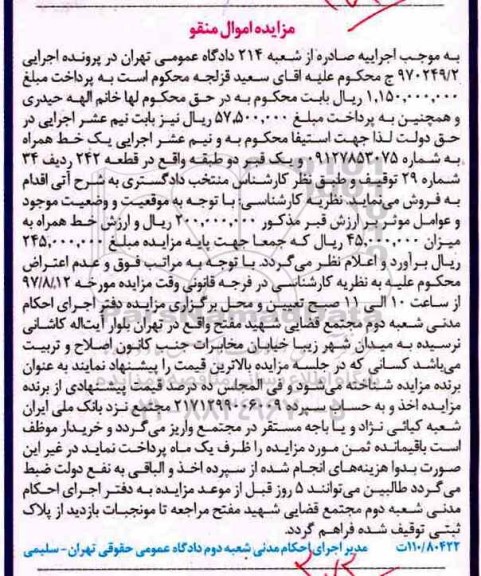 مزایده اموال منقو
به موجب اجراییه صادره از شعبه ۲۱۴ دادگاه عمومی تهران در پرونده اجرایی
۹۷۰۲۴۹/۲ ج محکوم علیه اقای سعید قزلجه محکوم است به پرداخت مبلغ
۱,۱۵۰,۰۰۰,۰۰۰ ریال بابت محکوم به در حق محکوم لها خانم الهه حیدری
و همچنین به پرداخت مبلغ ۵۷,۵۰۰,۰۰۰ ریال نیز بابت نیم عشر اجرایی در
حق دولت لذا جهت استیفا محکوم به و نیم عشر اجرایی یک خط همراه
به شماره ۰۹۱۲۷۸۵۳۰۷۵ و یک قبر دو طبقه واقع در قطعه ۲۴۲ ردیف ۳۴
شماره ۲۹ توقیف و طبق نظر کارشناس منتخب دادگستری به شرح آتی اقدام
به فروش می‌نماید. نظریه کارشناسی: با توجه به موقعیت و وضعیت موجود
و عوامل موثر بر ارزش قبر مذکور ۲۰۰,۰۰۰,۰۰۰ ریال و ارزش خط همراه به
میزان ۴۵,۰۰۰,۰۰۰ ریال که جمعا جهت پایه مزایده مبلغ ۲۴۵,۰۰۰,۰۰۰
ریال برآورد و اعلام نظر می‌گردد. با توجه به مراتب فوق و عدم اعتراض
محکوم علیه به نظریه کارشناسی در فرجه قانونی وقت مزایده مورخه ۹۷/۸/۱۲
از ساعت ۱۰ الی ۱۱ صبح تعیین و محل برگزاری مزایده دفتر اجرای احکام
مدنی شعبه دوم مجتمع قضایی شهید مفتح واقع در تهران بلوار آیت‌اله کاشانی
نرسیده به میدان شهر زیبا خیابان مخابرات جنب کانون اصلاح و تربیت
می‌باشد کسانی که در جلسه مزایده بالاترین قیمت را پیشنهاد نمایند به عنوان
برنده مزایده شناخته می‌شود و فی المجلس ده درصد قیمت پیشنهادی از برنده
مزایده اخذ و به حساب سپرده مجتمع نزد بانک ملی ایران
شعبه کیائی نژاد و یا باجه مستقر در مجتمع واریز می‌گردد و خریدار موظف
است باقیمانده ثمن مورد مزایده را ظرف یک ماه پرداخت نماید در غیر این
صورت بدوا هزینه‌های انجام شده از سپرده اخذ و الباقی به نفع دولت ضبط
می‌گردد طالبین می‌توانند ۵ روز قبل از موعد مزایده به دفتر اجرای احکام
مدنی شعبه دوم مجتمع قضایی شهید مفتح مراجعه تا مونجبات بازدید از پلاک
ثبتی توقیف شده فراهم گردد.
۱۱۰/۸۰۴۲۲ت مدیر اجرای احکام مدنی شعبه دوم دادگاه عمومی حقوقی تهران - سلیمی